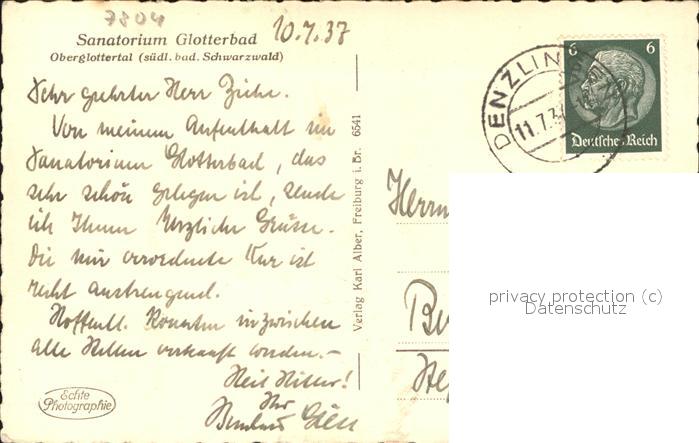 7804
10.7.37
Sanatorium Glotterbad
Oberglottertal (südl. bad. Schwarzwald)
Sehr geehrter Herr Ziehe.
Von meinem Aufenthalt im
Sanatorium Glotterbad, das
sehr schön gelegen ist, sende
ich Ihnen herzliche Grüsse.
Die mir verordnete Kur ist
recht anstrengend.
Hoffentl. konnten inzwischen
alle Stellen verkauft werden.-
Heil Hitler!
Ihr
Echte
Photographie
Verlag Karl Alber, Freiburg i. Br. 6541
6 6
Deutsches Reich
DENZLINGEN
11.7.37
Herrn
privacy protection (c)
Datenschutz